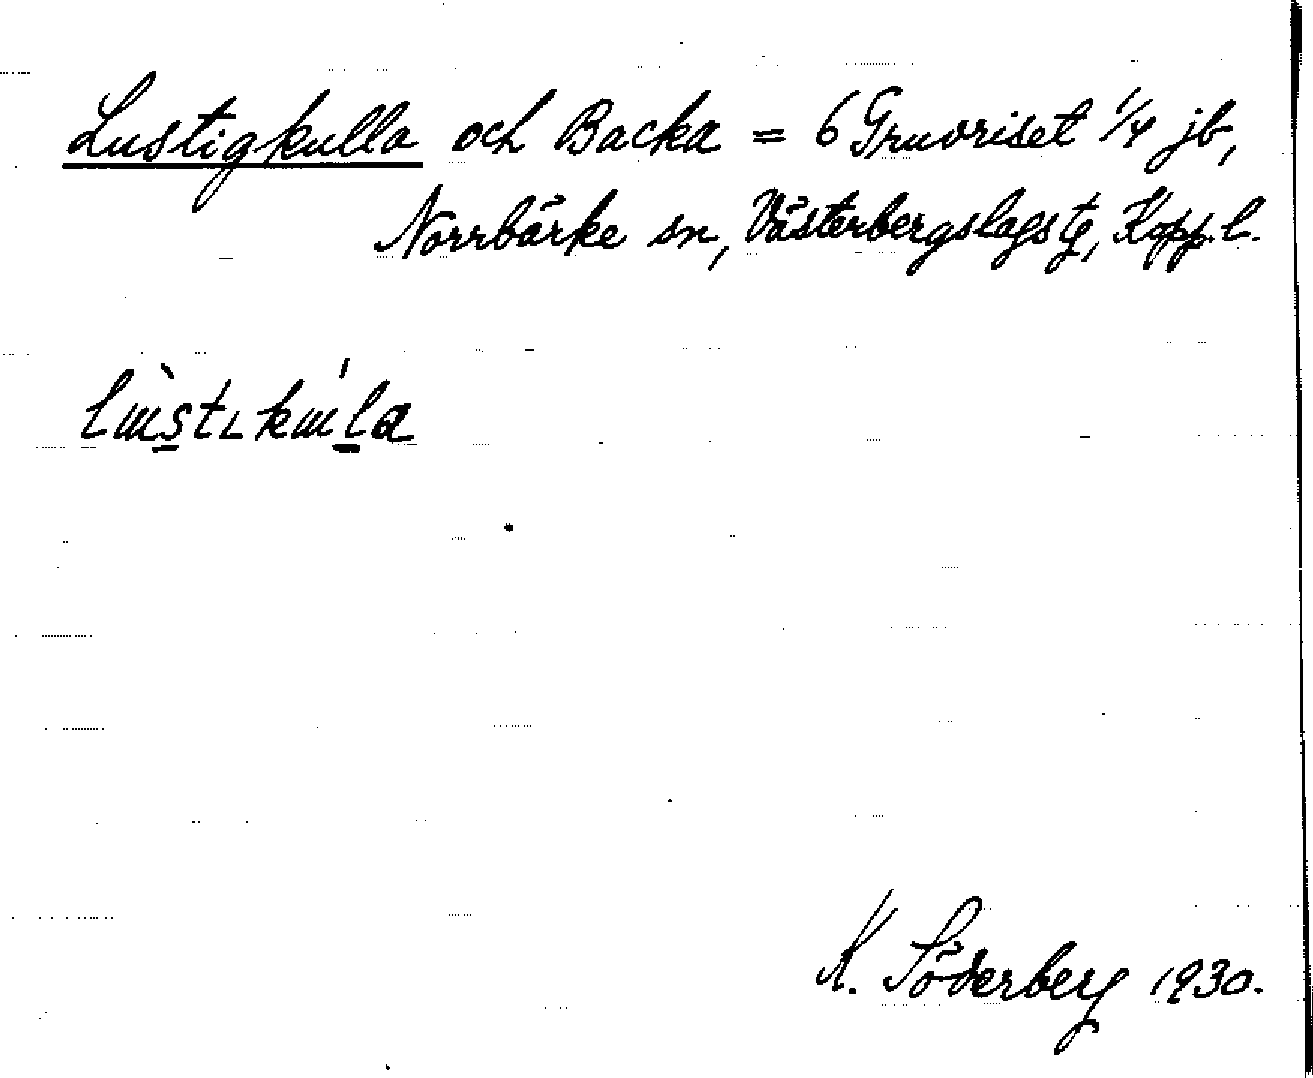 Lustigkulla och Backa = 6 Gruvriset 1/4 jb,
Norrbärke sn, Västerbergslags tg, Kopp. l.
K. Söderberg 1930.